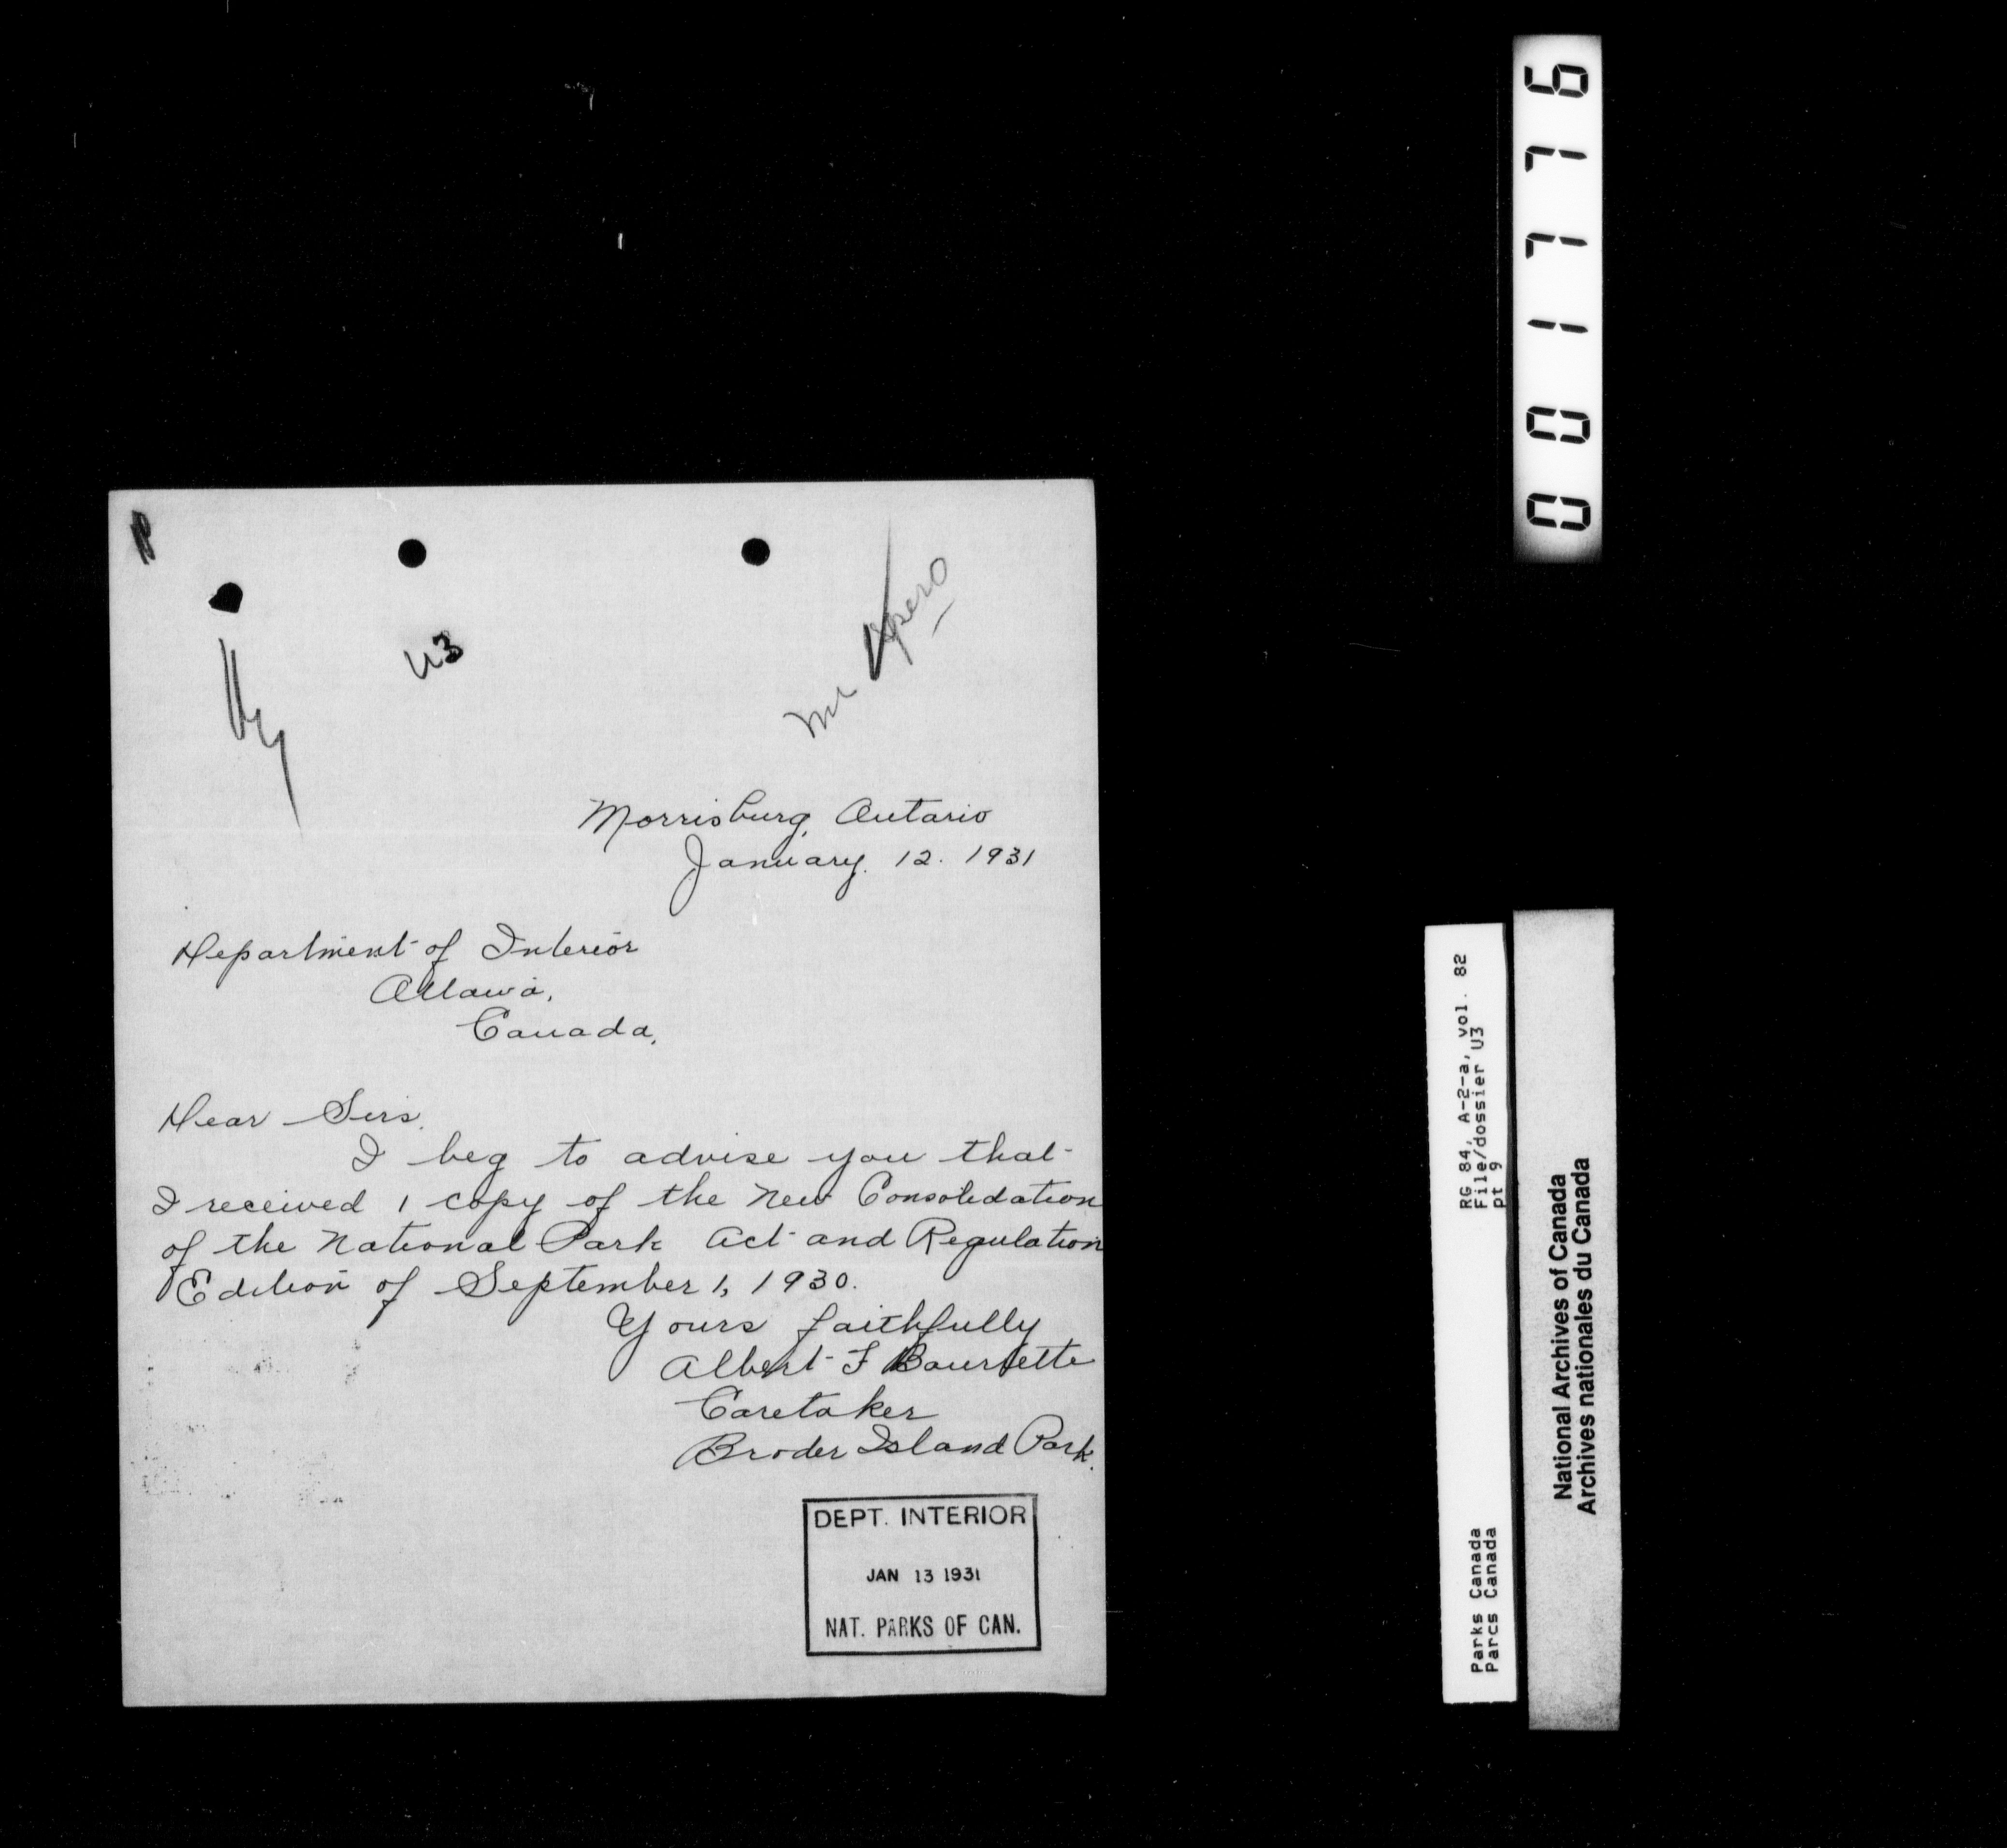 U3
Mr Spero
Morrisburg, Ontario
January. 12. 1931
Department of Interior
Ottawa,
Canada,
Dear Sirs.
I beg to advise you that
I received 1 copy of the New Consolidation
of the National Park Act and Regulation
Edition of September 1, 1930.
Yours faithfully
Albert F Bourdette
Caretaker
Broder Island Park.
DEPT. INTERIOR
JAN 13 1931
NAT. PARKS OF CAN.
001776
RG 84, A-2-a, vol. 82
File/dossier U3
pt 9
Parks Canada
Parcs Canada
National Archives of Canada
Archives nationales du Canada